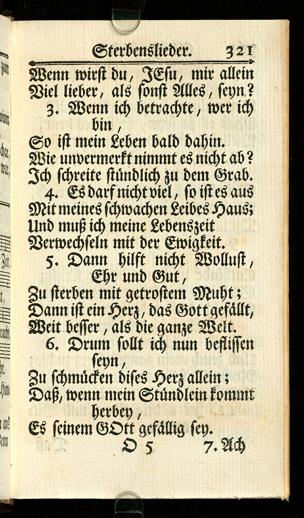 Sterbenslieder. 321
Wenn wirst du, JEsu, mir allein
Viel lieber, als sonst Alles, seyn?
3. Wenn ich betrachte, wer ich
bin,
So ist mein Leben bald dahin.
Wie unvermerkt nimmt es nicht ab?
Ich schreite stündlich zu dem Grab.
4. Es darf nicht viel, so ist es aus
Mit meines schwachen Leibes Haus;
Und muß ich meine Lebenszeit
Verwechseln mit der Ewigkeit.
5. Dann hilft nicht Wollust,
Ehr und Gut,
Zu sterben mit getrostem Muht;
Dann ist ein Herz, das Gott gefällt,
Weit besser, als die ganze Welt.
6. Drum sollt ich nun beflissen
seyn,
Zu schmücken dises Herz allein;
Daß, wenn mein Stündlein kommt
herbey,
Es seinem GOtt gefällig sey.
O 5 7. Ach